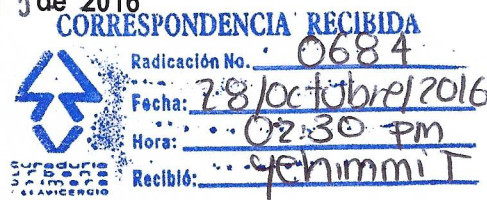 de 2016
CORRESPONDENCIA RECIBIDA
Radicación No. 0684
Fecha: 28/octubre/2016
Hora: 02:30 pm
Recibió: Yehimmi T
Curaduría
Urbana
Primera
VILLAVICENCIO